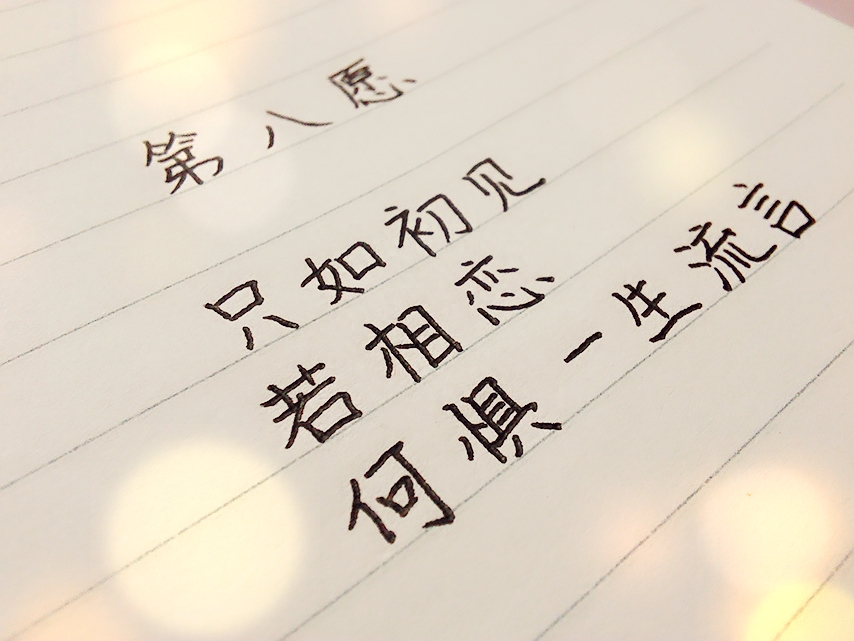 第八愿
只如初见
若相恋
何惧一生流言